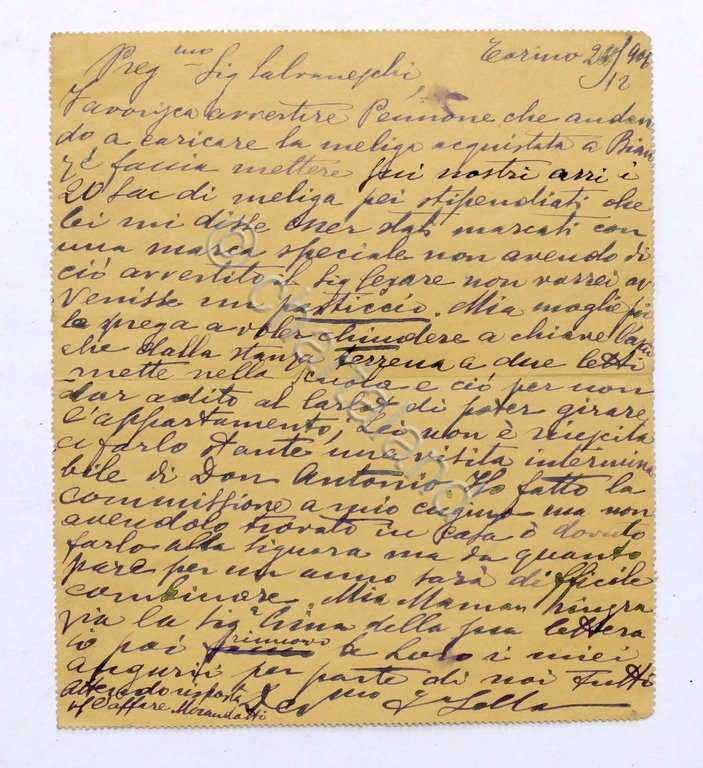 Torino 24/906
12
Preg.mo Sig Salvaneschi,
Favorisca avvertire Pennone che andan
do a caricare la meliga acquistata a Bian
zè faccia mettere sui nostri carri i
20 sac di meliga pei stipendiati che
lei mi disse esser stati marcati con
una marca speciale non avendo di
ciò avvertito il Sig Cesare non vorrei av
venisse un pasticcio. Mia moglie poi
la prega a voler chiudere a chiave l'
che dalla stanza terrena a due letti
mette nella scuola e ciò per non
dar adito al di poter girare
l'appartamento, lei non è riuscita
a farlo stante una visita intermina
bile di Don Antonio. Ho fatto la
commissione a mio cugino ma non
avendolo trovato in casa ò dovuto
farlo alla signora ma da quanto
pare per un anno sarà difficile
combinare. Mia Maman ringra
zia la Sig.a della sua lettera
io poi rinnovo a Loro i miei
auguri per parte di noi tutti
Attendo risposta
pf l'affare
Dev mo